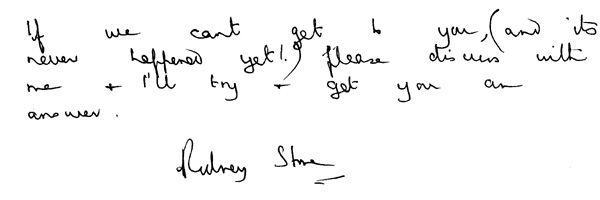 If we cant get to you, (and its
never happened yet!) please discuss with
me + I'll try + get you an
answer.
Rodney Stone